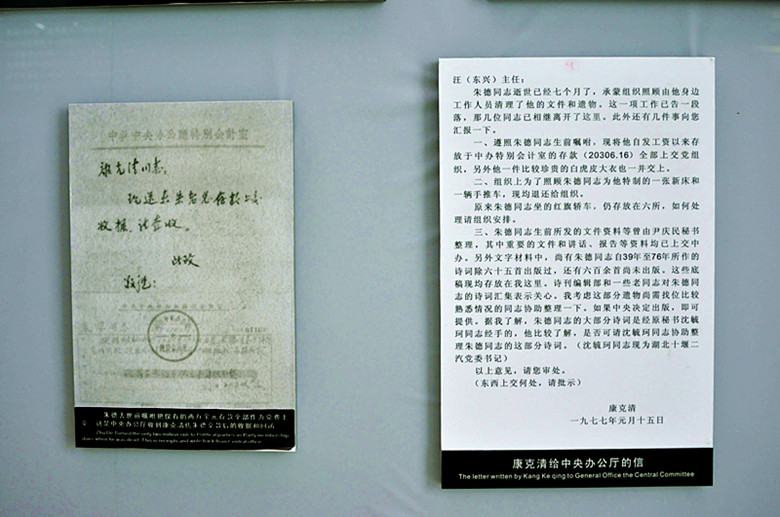 中共中央办公厅特别会计室
康克清同志:
现送去朱老总存款上交
收据,请查收。
此致
敬礼!
朱德去世前嘱咐把仅有的两万余元存款全部作为党费上
交 这是中央办公厅收到康克清代朱德交款后的收据和回函
汪(东兴)主任:
朱德同志逝世已经七个月了,承蒙组织照顾由他身边
工作人员清理了他的文件和遗物。这一项工作已告一段
落,那几位同志已相继离开了这里。此外还有几件事向您
汇报一下。
一、遵照朱德同志生前嘱咐,现将他自发工资以来存
放于中办特别会计室的存款(20306.16)全部上交党组
织,另外他一件比较珍贵的白虎皮大衣也一并交上。
二、组织上为了照顾朱德同志为他特制的一张新床和
一辆手推车,现均退还给组织。
原来朱德同志坐的红旗轿车,仍存放在六所,如何处
理请组织安排。
三、朱德同志生前所发的文件资料等曾由尹庆民秘书
整理,其中重要的文件和讲话、报告等资料均已上交中
办。另外文字材料中,尚有朱德同志自39年至76年所作的
诗词除六十五首出版过,还有六百余首尚未出版。这些底
稿现均存放在我这里。诗刊编辑部和一些老同志对朱德同
志的诗词汇集表示关心。我考虑这部分遗物尚需找位比较
熟悉情况的同志协助整理一下。如果中央决定出版,即可
提供。据我了解,朱德同志的大部分诗词是经原秘书沈毓
珂同志经手的,他比较了解,是否可请沈毓珂同志协助整
理朱德同志的这部分诗词。(沈毓珂同志现为湖北十堰二
汽党委书记)
以上意见,请您审处。
(东西上交何处,请批示)
康克清
一九七七年元月十五日
康克清给中央办公厅的信
The letter written by Kang Ke qing to General Office the Central Committee